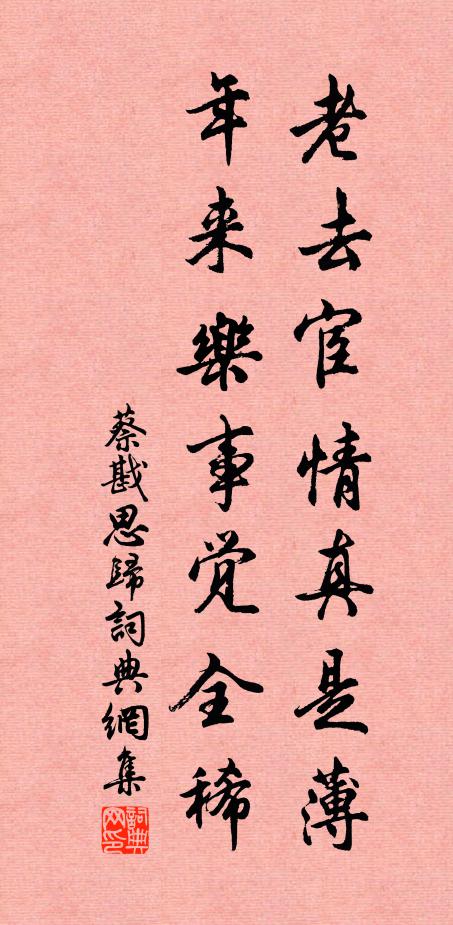 老去宦情真是薄
年来樂事觉全稀
蔡戡思歸詞典網集
詞典网印